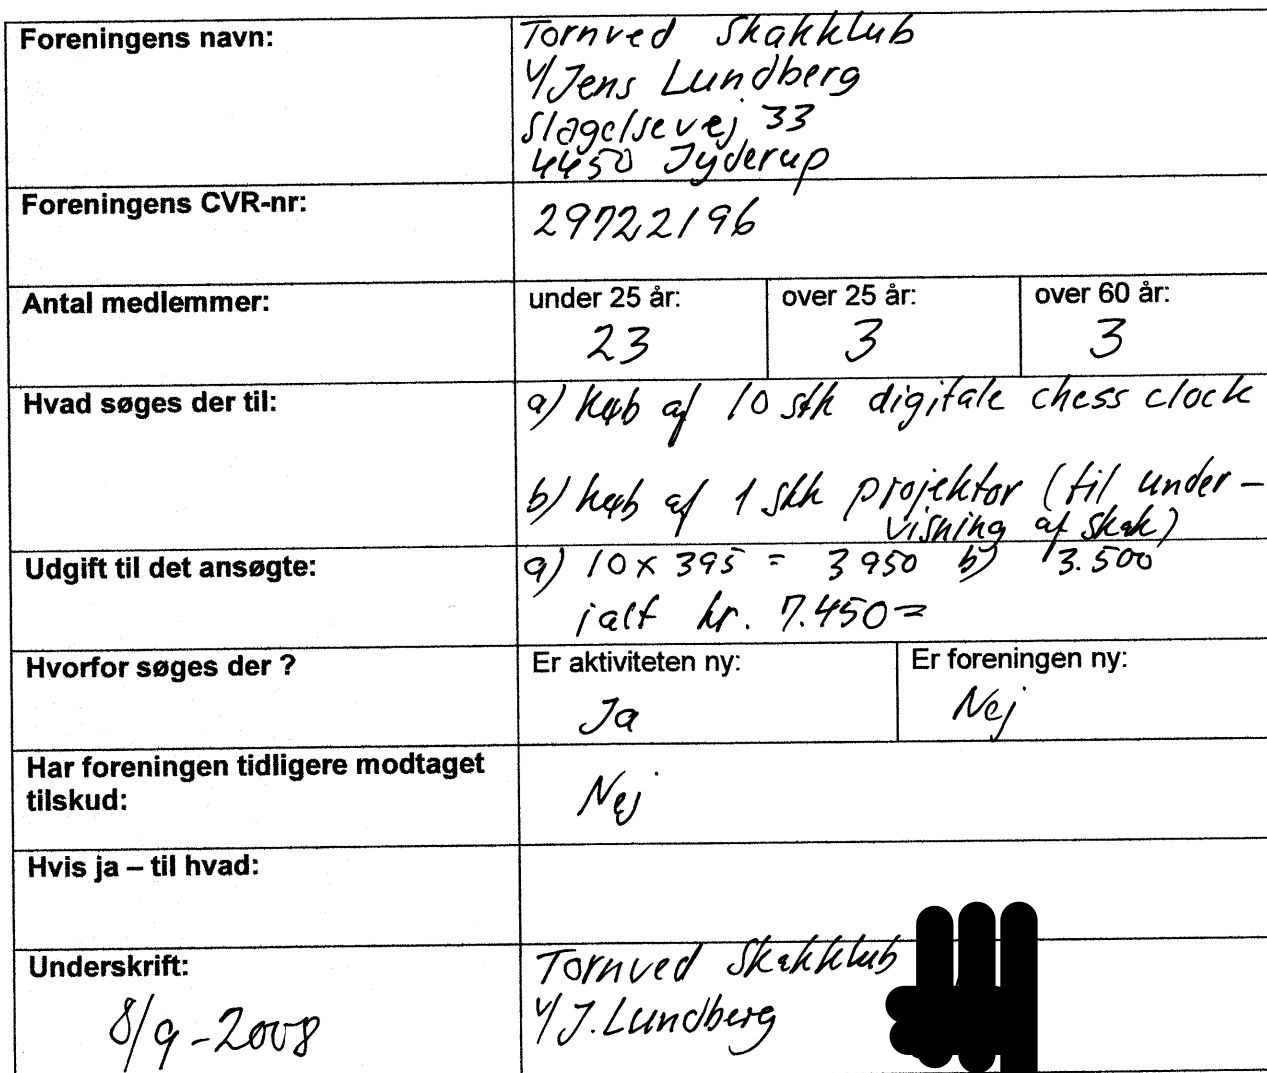 Foreningens navn:
Tornved Skakklub
v/Jens Lundberg
Slagelsevej 33
4450 Jyderup
Foreningens CVR-nr:
29722196
Antal medlemmer:
under 25 år:
23
over 25 år:
3
over 60 år:
3
Hvad søges der til:
a) køb af 10 stk digitale chess clock
b) køb af 1 stk projektor (til under-
visning af skak)
Udgift til det ansøgte:
a) 10 x 395 = 3950 b) 3.500
ialt kr. 7.450=
Hvorfor søges der ?
Er aktiviteten ny:
Ja
Er foreningen ny:
Nej
Har foreningen tidligere modtaget
tilskud:
Nej
Hvis ja – til hvad:
Underskrift:
8/9-2008
Tornved Skakklub
v/J. Lundberg